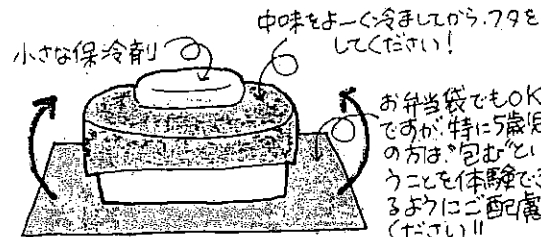 小さな保冷剤
中味をよーく冷ましてから、フタを
してください！
お弁当袋でもOK
ですが、特に5歳児
の方は、"包む"とい
うことを体験でき
るようにご配慮
ください!!